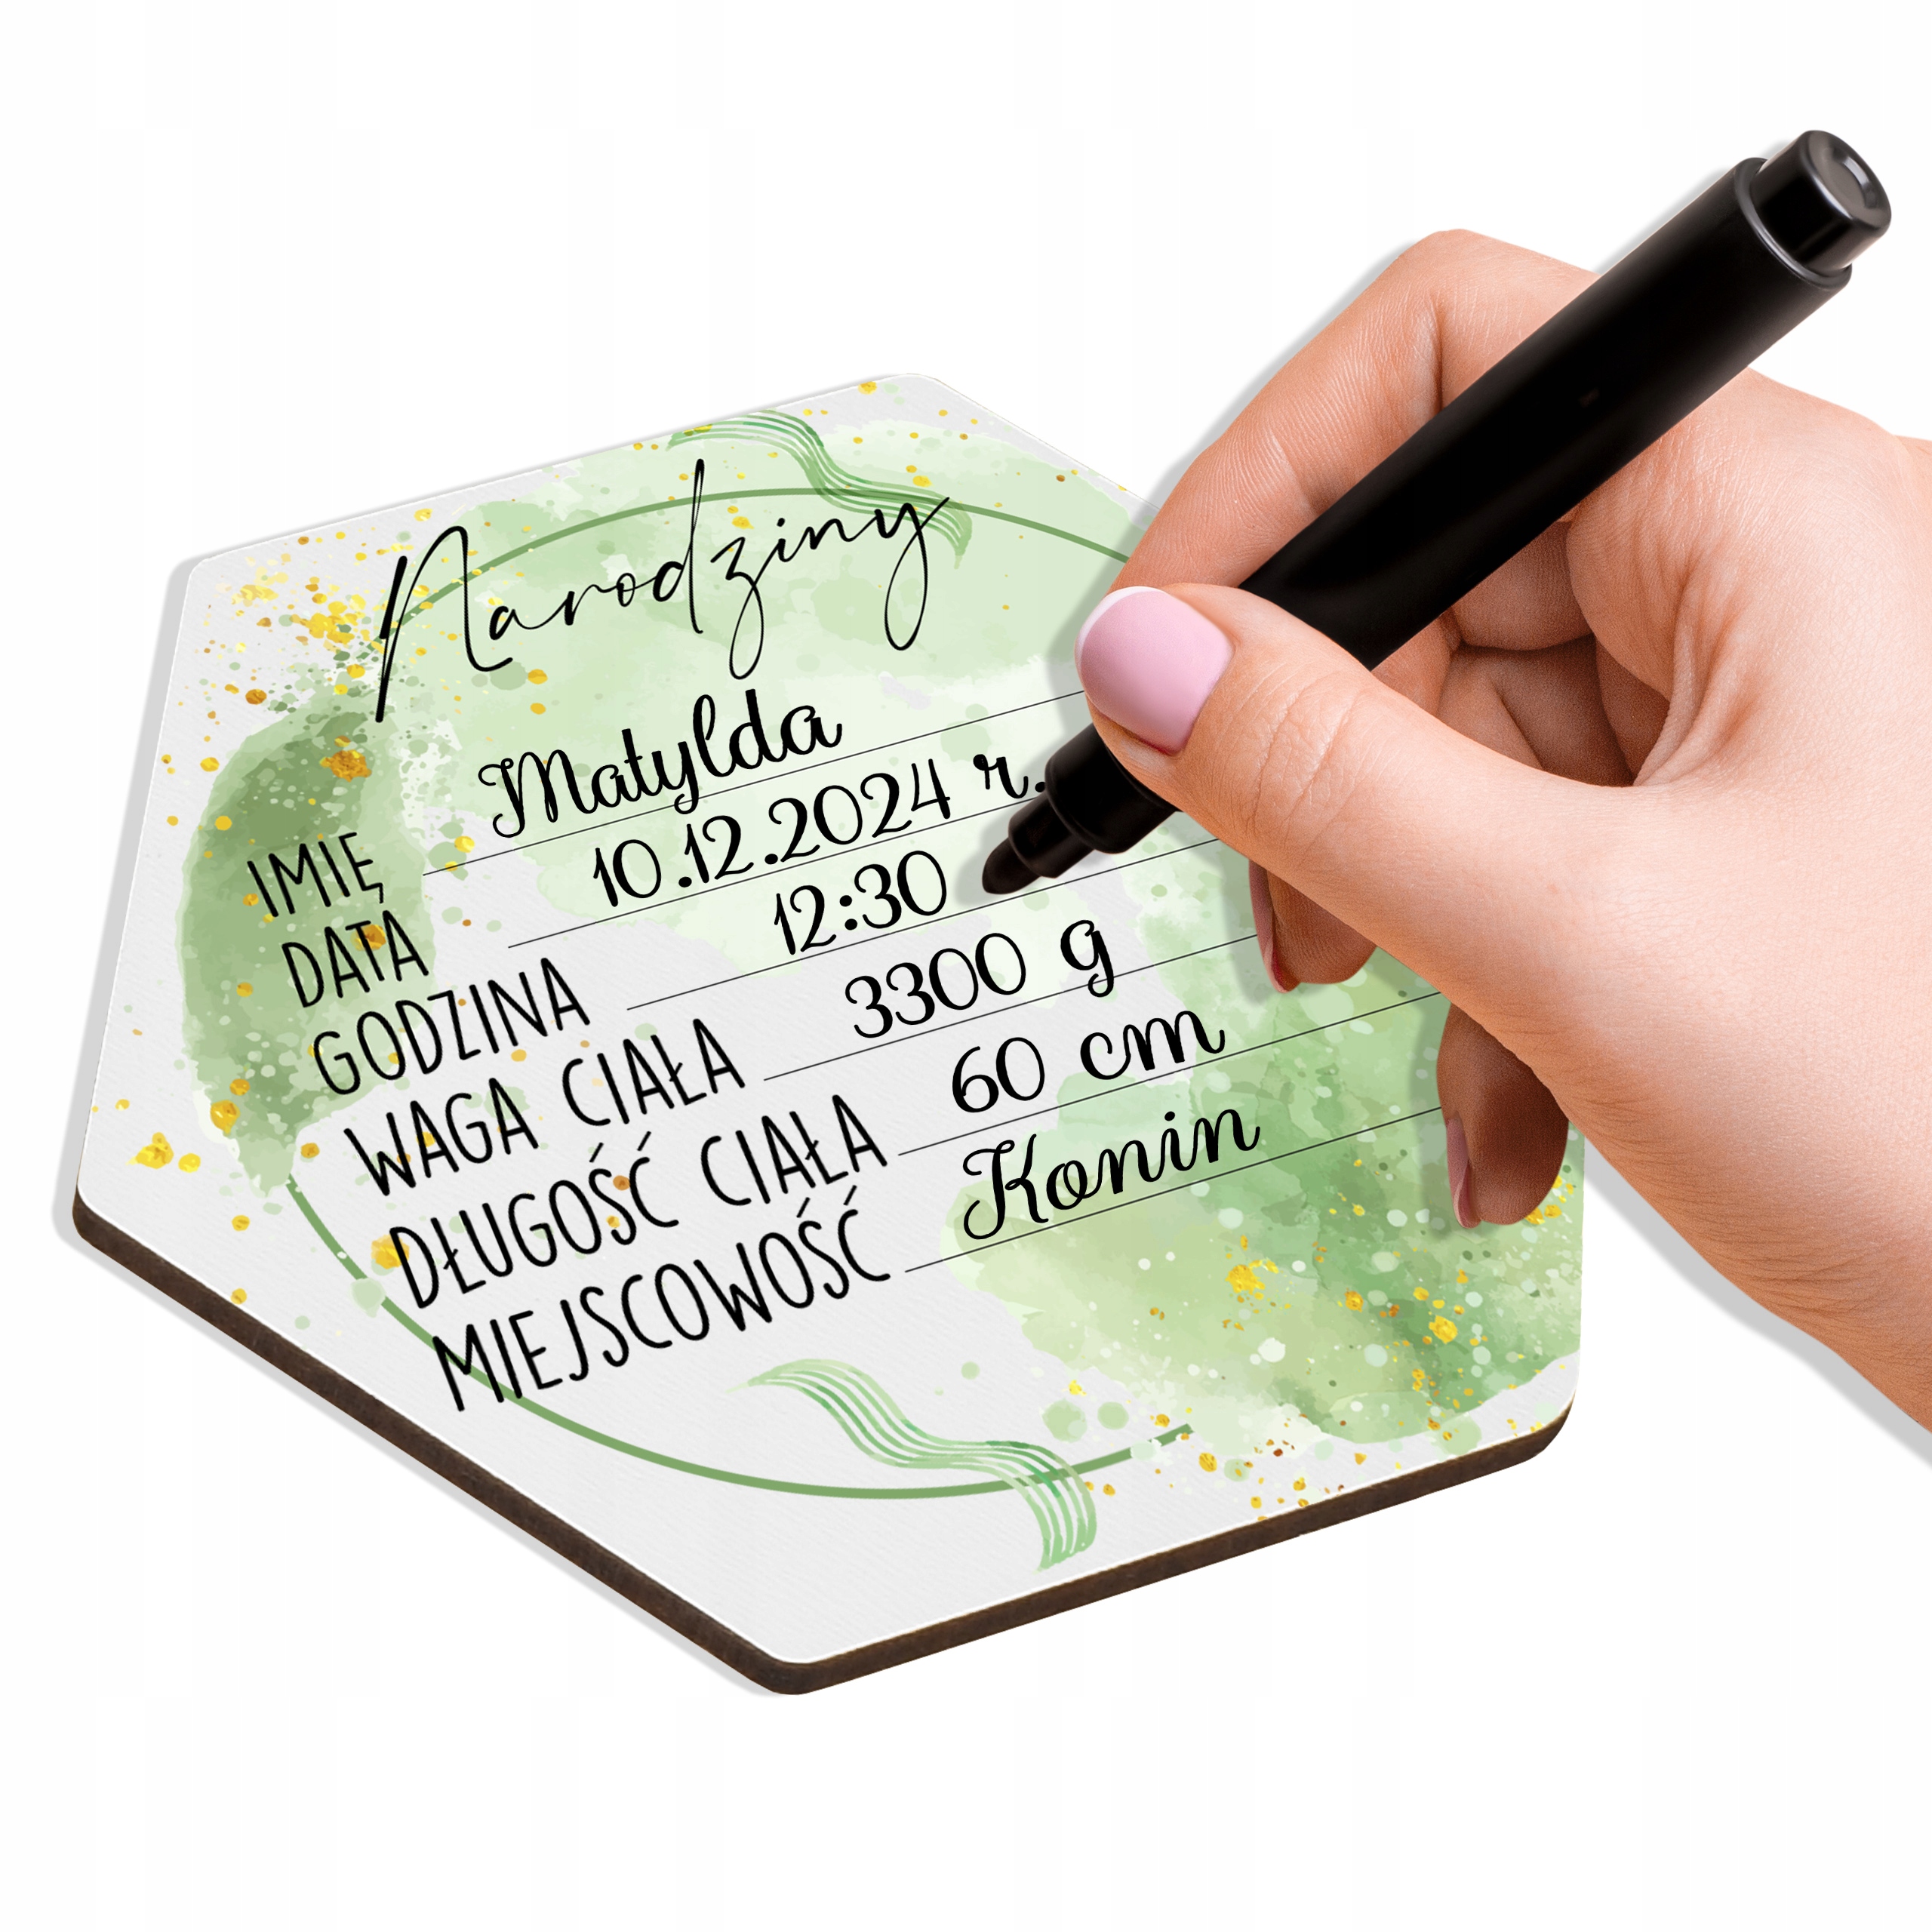 Narodziny
IMIĘ Matylda
DATA 10.12.2024 r.
GODZINA 12:30
WAGA CIAŁA 3300 g
DŁUGOŚĆ CIAŁA 60 cm
MIEJSCOWOŚĆ Konin